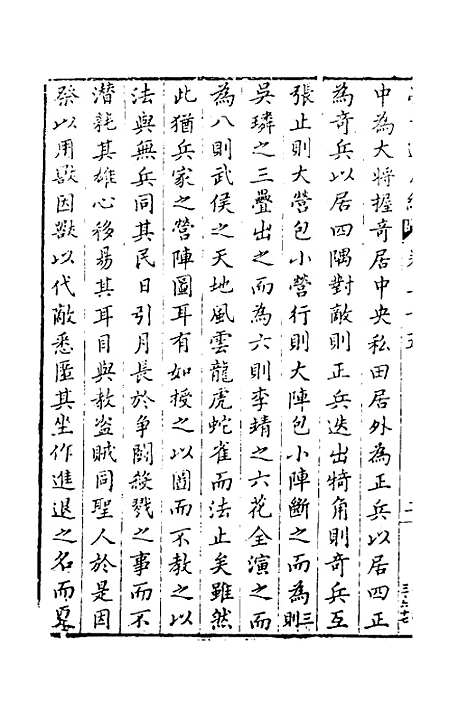 中為大將握竒居中央私田居外為正兵以居四正
為竒兵以居四隅對敵則正兵迭出犄角則竒兵互
張止則大營包小營行則大陣包小陣斷之而為三則
吳璘之三疊出之而為六則李靖之六花全演之而
為八則武侯之天地風雲龍虎蛇雀而法止矣雖然
此猶兵家之營陣圖耳有如授之以圖而不教之以
法與無兵同其民日引月長於爭鬪殺戮之事而不
潛耗其雄心移易其耳目與教盜賊同聖人於是因
祭以用獸因獸以代敵悉匿其坐作進退之名而